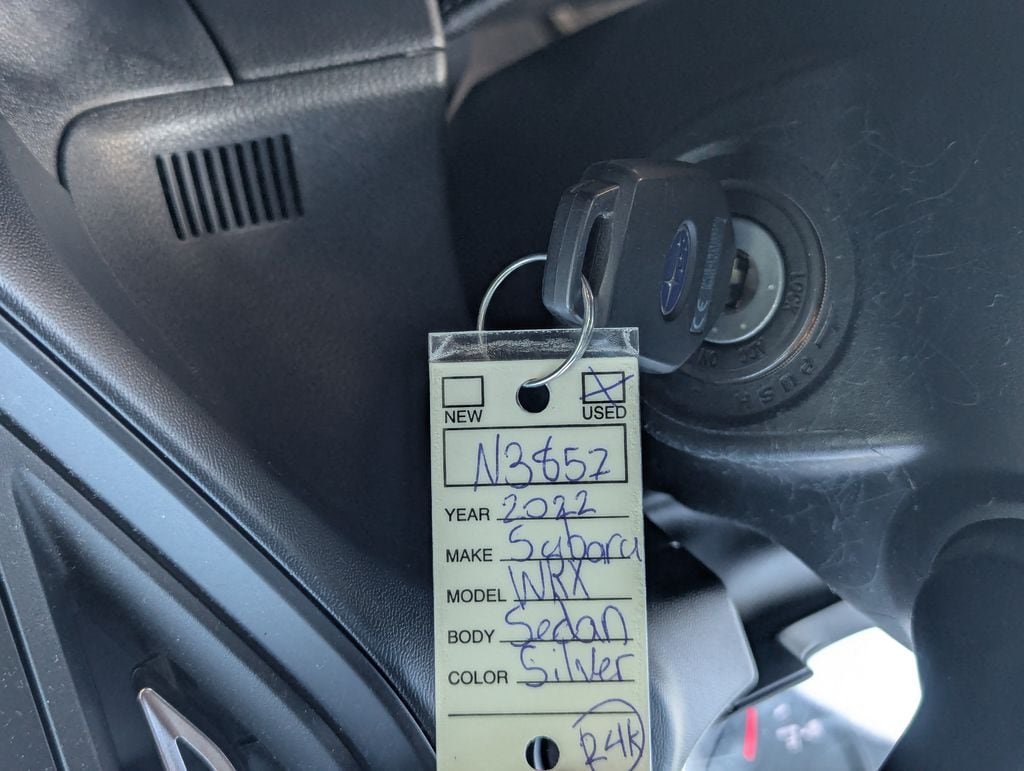 NEW USED
N3857
YEAR 2022
MAKE Subaru
MODEL WRX
BODY Sedan
COLOR Silver
R4K
LOCK
ACC
ON
PUSH